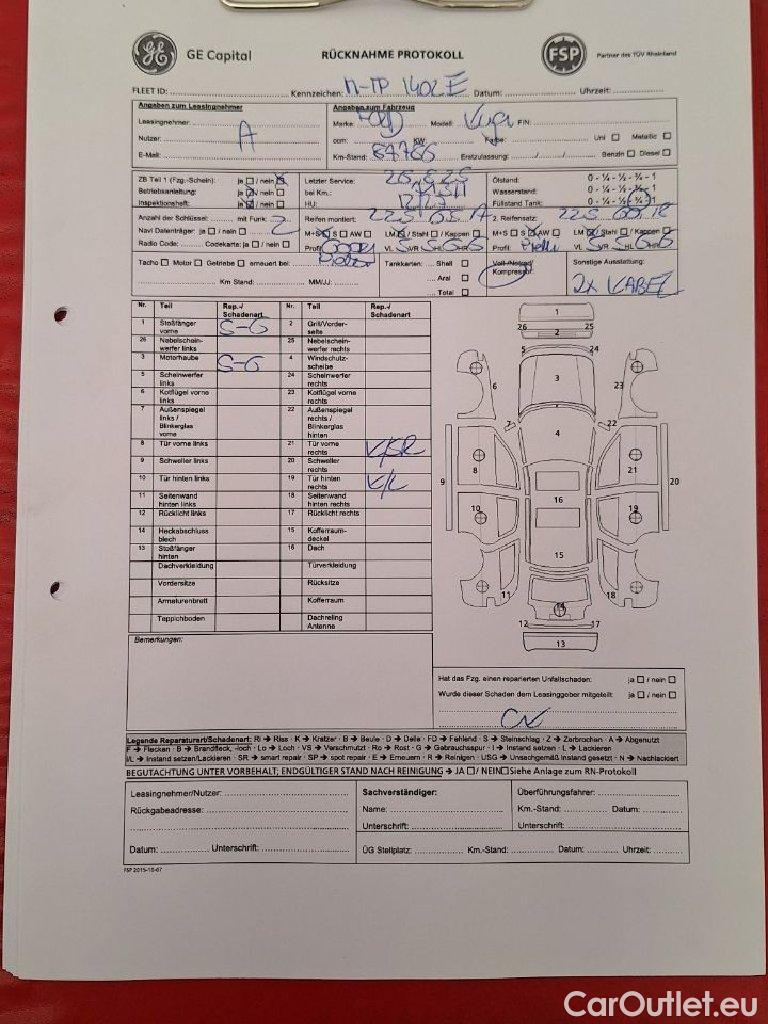 GE Capital RÜCKNAHME PROTOKOLL FSP Partner des TÜV Rheinland
FLEET ID: Kennzeichen: M-TP 1402E Datum: Uhrzeit:
Angaben zum Leasingnehmer Angaben zum Fahrzeug
Leasingnehmer: Marke: Modell: Kuga FIN:
Nutzer: A ccm: KW: Farbe: Uni ☐ Metallic ☐
E-Mail: Km-Stand: 84766 Erstzulassung: / / Benzin ☐ Diesel ☐
ZB Teil 1 (Fzg.-Schein): ja ☐ / nein ☐ Letzter Service: Ölstand: 0 - ¼ - ½ - ¾ - 1
Betriebsanleitung: ja ☐ / nein ☐ bei Km.: Wasserstand: 0 - ¼ - ½ - ¾ - 1
Inspektionsheft: ja ☐ / nein ☐ HU: Füllstand Tank: 0 - ¼ - ½ - ¾ - 1
Anzahl der Schlüssel: mit Funk: 2 Reifen montiert: 2. Reifensatz:
Navi Datenträger: ja ☐ / nein ☐ M+S ☐ S ☐ AW ☐ LM ☐ / Stahl ☐ / Kappen ☐ M+S ☐ S ☐ AW ☐ LM ☐ / Stahl ☐ / Kappen ☐
Radio Code: Codekarte: ja ☐ / nein ☐ Profil: VL 5 VR 5 HL 6 HR 6 Profil: VL 5 VR 5 HL 6 HR 6
Tacho ☐ Motor ☐ Getriebe ☐ erneuert bei: Tankkarten: Shell ☐ Voll-/Notrad/ Sonstige Ausstattung:
Aral ☐ Kompressor: 2x KABEL
Km Stand: MM/JJ: Total ☐
Nr. Teil Rep.-/ Schadenart Nr. Teil Rep.-/ Schadenart
1 Stoßfänger vorne S-G 2 Grill/Vorderseite
26 Nebelscheinwerfer links 25 Nebelscheinwerfer rechts
3 Motorhaube S-G 4 Windschutzscheibe
5 Scheinwerfer links 24 Scheinwerfer rechts
6 Kotflügel vorne links 23 Kotflügel vorne rechts
7 Außenspiegel links / Blinkerglas vorne 22 Außenspiegel rechts / Blinkerglas hinten
8 Tür vorne links 21 Tür vorne rechts K/SR
9 Schweller links 20 Schweller rechts
10 Tür hinten links 19 Tür hinten rechts
11 Seitenwand hinten links 18 Seitenwand hinten rechts
12 Rücklicht links 17 Rücklicht rechts
14 Heckabschluss blech 15 Kofferraumdeckel
13 Stoßfänger hinten 16 Dach
Dachverkleidung Türverkleidung
Vordersitze Rücksitze
Armaturenbrett Kofferraum
Teppichboden Dachreling Antenne
1
26 2 25
5 24
6 3 23
7 22
4
8 21
9 20
10 16 19
15
11 18
14
12 17
13
Bemerkungen:
Hat das Fzg. einen reparierten Unfallschaden: ja ☐ / nein ☐
Wurde dieser Schaden dem Leasinggeber mitgeteilt: ja ☐ / nein ☐
Legende Reparaturart/Schadenart: Ri → Riss · K → Kratzer · B → Beule · D → Delle · FD → Fehlend · S → Steinschlag · Z → Zerbrochen · A → Abgenutzt
F → Flecken · B → Brandfleck, -loch · Lo → Loch · VS → Verschmutzt · Ro → Rost · G → Gebrauchsspur · I → Instand setzen · L → Lackieren
I/L → Instand setzen/Lackieren · SR → smart repair · SP → spot repair · E → Erneuern · R → Reinigen · USG → Unsachgemäß instand gesetzt · N → Nachlackiert
BEGUTACHTUNG UNTER VORBEHALT; ENDGÜLTIGER STAND NACH REINIGUNG → JA ☐ / NEIN ☐ Siehe Anlage zum RN-Protokoll
Leasingnehmer/Nutzer: Sachverständiger: Überführungsfahrer:
Rückgabeadresse: Name: Km.-Stand: Datum:
Unterschrift: Unterschrift:
Datum: Unterschrift: ÜG Stellplatz: Km.-Stand: Datum: Uhrzeit:
FSP 2015-10-07
CarOutlet.eu